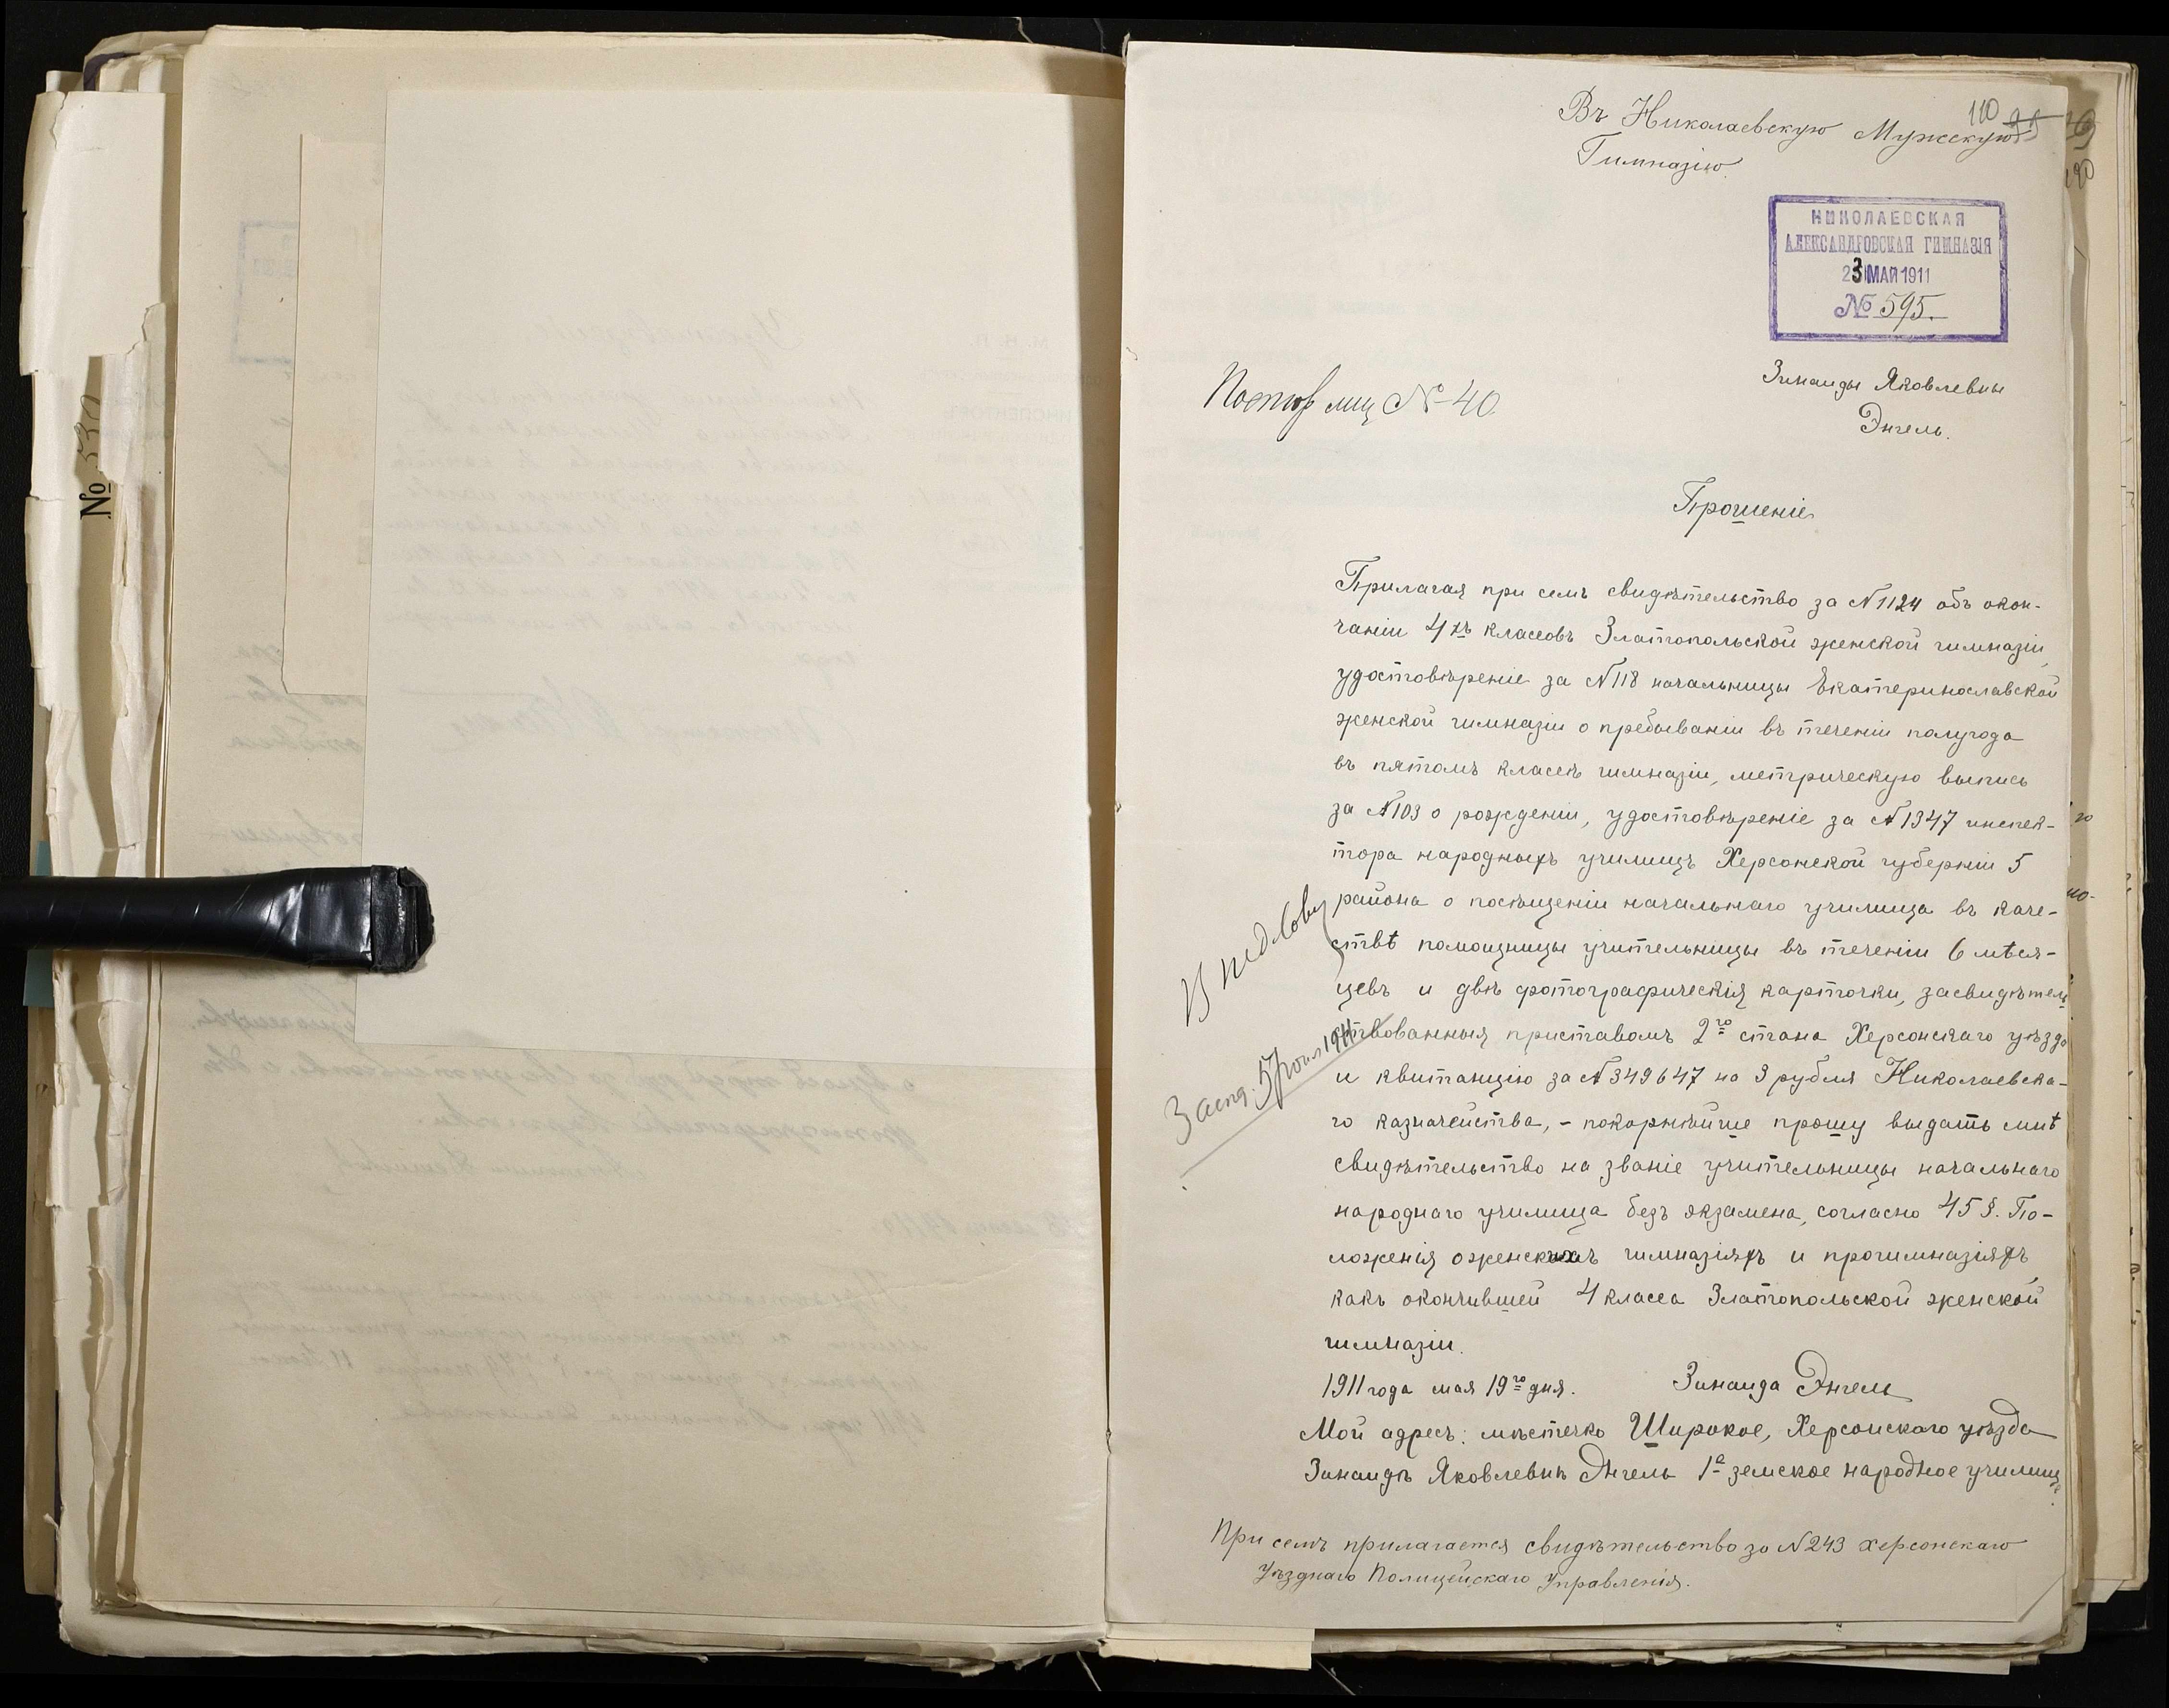 № 530
Въ Николаевскую Мужскую
Гимназію.
110
НИКОЛАЕВСКАЯ
АЛЕКСАНДРОВСКАЯ ГИМНАЗІЯ
23 МАЯ 1911
№ 595.
Зинаиды Яковлевны
Энгель.
№ 40
Прошеніе
Прилагая при семъ свидѣтельство за №1124 объ окон-
чаніи 4хъ классовъ Златопольской женской гимназіи,
удостовѣреніе за №118 начальницы Екатеринославской
женской гимназіи о пребываніи въ теченіи полугода
въ пятомъ классѣ гимназіи, метрическую выпись
за №103 о рожденіи, удостовѣреніе за №1347 инспек-
тора народныхъ училищъ Херсонской губерніи 5
района о посѣщеніи начальнаго училища въ каче-
ствѣ помощницы учительницы въ теченіи 6 мѣся-
цевъ и двѣ фотографическія карточки, засвидѣтель-
ствованныя приставомъ 2го стана Херсонскаго уѣзда
и квитанцію за №349647 на 3 рубля Николаевска-
го казначейства, - покорнѣйше прошу выдать мнѣ
свидѣтельство на званіе учительницы начальнаго
народнаго училища безъ экзамена, согласно 45 §. По-
ложенія о женскихъ гимназіяхъ и прогимназіяхъ,
какъ окончившей 4 класса Златопольской женской
гимназіи.
1911 года мая 19го дня. Зинаида Энгель
Мой адресъ: мѣстечко Широкое, Херсонскаго уѣзда
Зинаидѣ Яковлевнѣ Энгель 1е земское народное училище.
При семъ прилагается свидѣтельство за №243 Херсонскаго
Уѣзднаго Полицейскаго Управленія.